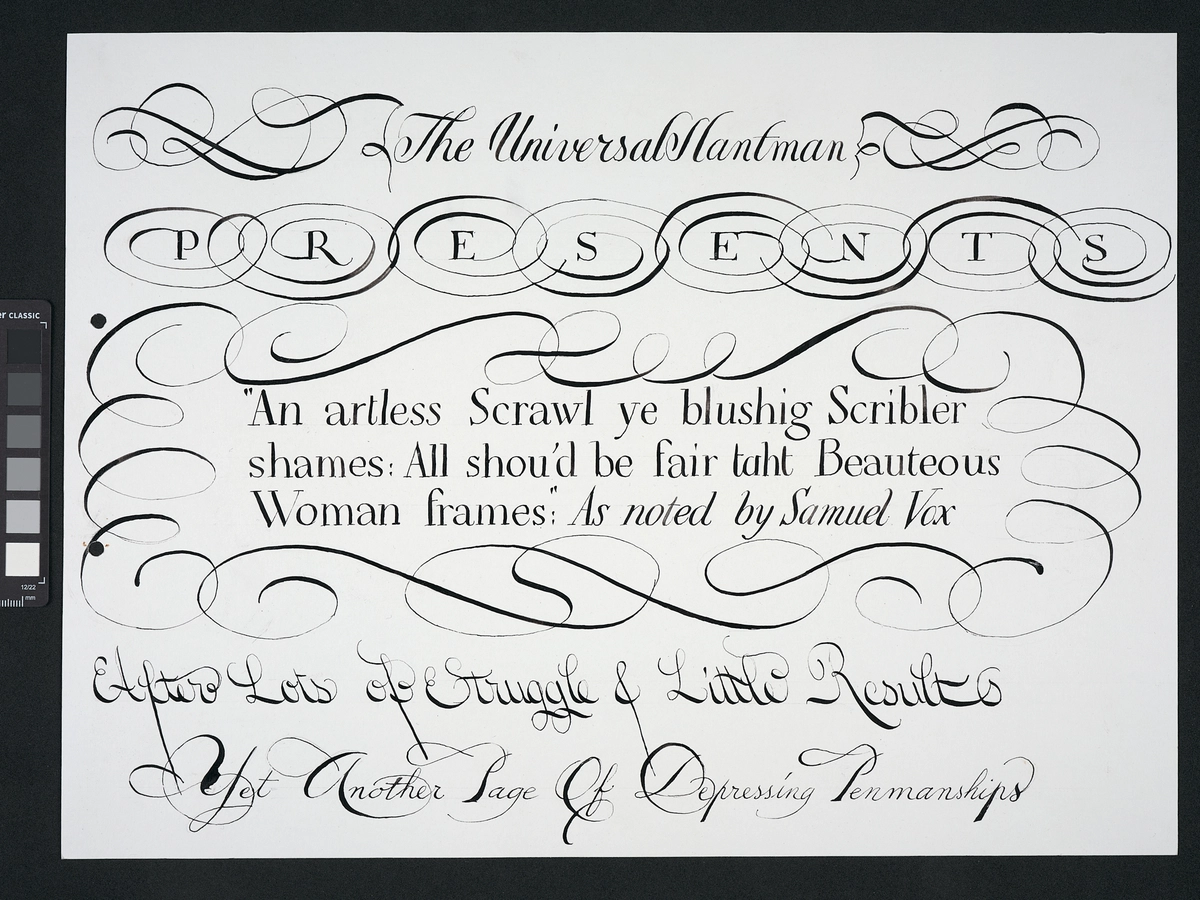 The Universal Hantman
PRESENTS
"An artless Scrawl ye blushig Scribler
shames: All shou'd be fair taht Beauteous
Woman frames": As noted by Samuel Vox
After Lots of Struggle & Little Results
Yet Another Page Of Depressing Penmanships
CLASSIC
12/22
mm